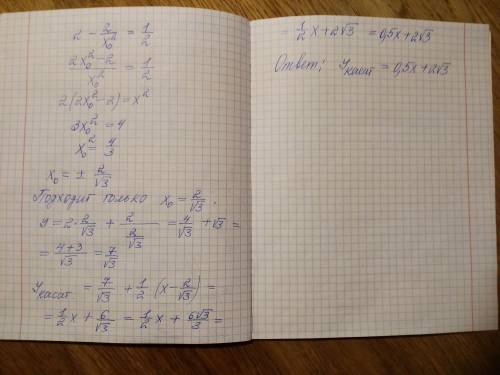 2 - 2/x₀² = 1/2
(2x₀² - 2)/x₀² = 1/2
2(2x₀² - 2) = x²
3x₀² = 4
x₀² = 4/3
x₀ = ± 2/√3
Подходит только x₀ = 2/√3.
y = 2·2/√3 + 2/(2/√3) = 4/√3 + √3 =
= (4+3)/√3 = 7/√3
Yкасат = 7/√3 + 1/2 (x - 2/√3) =
= 1/2 x + 6/√3 = 1/2 x + 6√3/3 =
= 1/2 x + 2√3 = 0,5x + 2√3
Ответ: Yкасат = 0,5x + 2√3